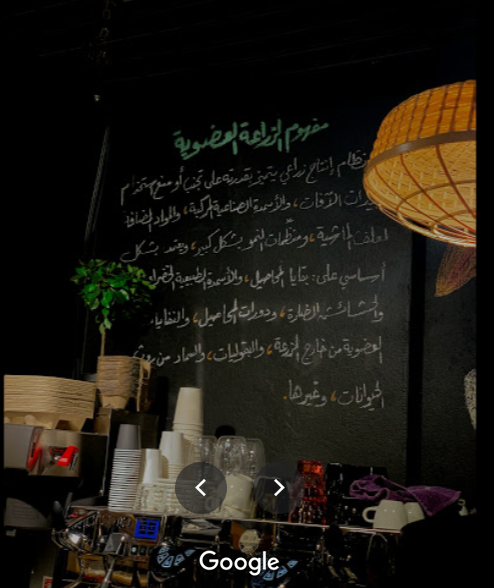 مفهوم الزراعة العضوية
نظام إنتاج زراعي يتميز بقدرته على تجنب أو منع استخدام
الآفات، والأسمدة الصناعية المركبة، والمواد المضافة
لعلف الماشية، ومنظّمات النمو بشكل كبير، ويعتمد بشكل
أساسي على: بقايا المحاصيل، والأسمدة الطبيعية الخضراء
والحشائش الضارة، ودورات المحاصيل، والنفايا،
العضوية من خارج المزرعة، والبقوليات، والسماد من روث
الحيوانات، وغيرها.
Google